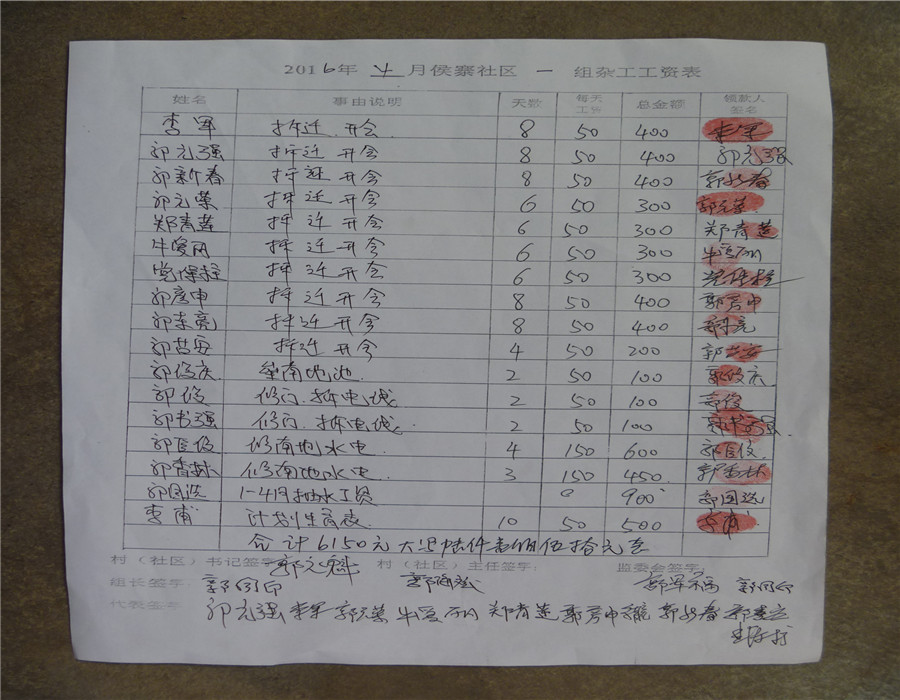 2016年 4 月侯寨社区 一 组杂工工资表
姓名 事由说明 天数 每天工资 总金额 领款人签名
李军 拆迁 开会 8 50 400 李军
郭元强 拆迁 开会 8 50 400 郭元强
郭新春 拆迁 开会 8 50 400 郭新春
郭元荣 拆迁 开会 6 50 300 郭元荣
郑青莲 拆迁 开会 6 50 300 郑青莲
拆迁 开会 6 50 300
党保拴 拆迁 开会 6 50 300 党保拴
郭彦申 拆迁 开会 8 50 400 郭彦申
拆迁 开会 8 50 400
拆迁 开会 4 50 200
郭俊庆 南地池 2 50 100 郭俊庆
郭俊 修门 拆电线 2 50 100 郭俊
郭书强 修门 拆电线 2 50 100 郭书强
郭 俊 修南地水电 4 150 600 郭 俊
郭香林 修南地水电 3 150 450 郭香林
郭国选 1-4月抽水工资 900 郭国选
李甫 计划生育表 10 50 500 李甫
合计6150元 大写陆仟壹佰伍拾元
村（社区）书记签字： 村（社区）主任签字： 监委会签字：
组长签字：
代表签字： 郭元强 李军 郭元荣 郑青莲 郭彦申 郭新春